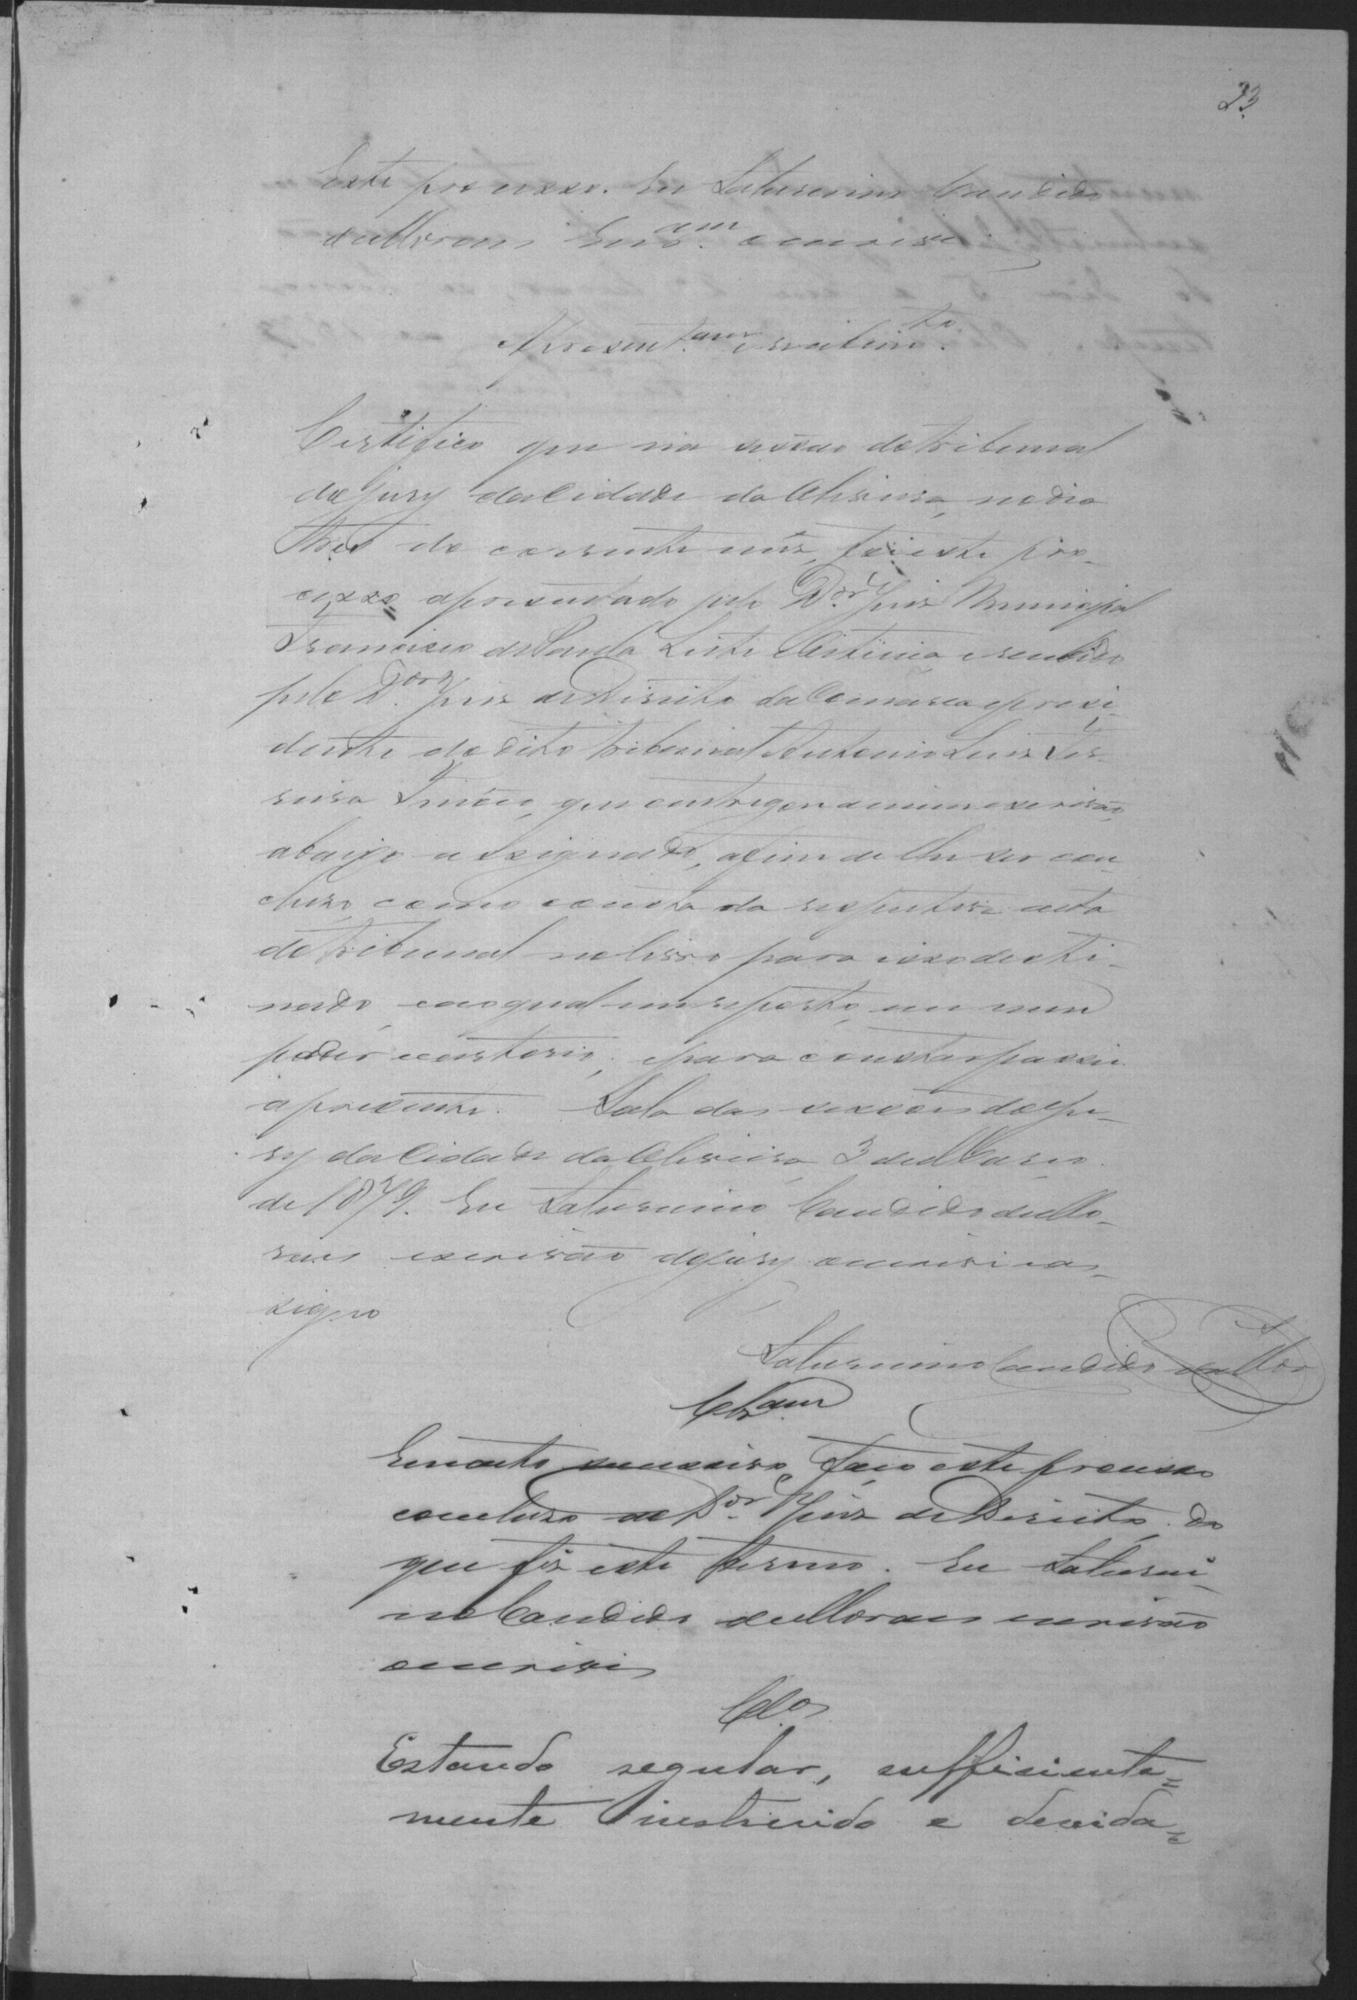 23
este processo. Eu Saturnino Candido
de Moraes Escr.am escrevi
Apresent.am e recebim.to
Certifico que na sessão do tribunal
do jury da Cidade da Oliveira, no dia
tres do corrente mês, foi este pro-
cesso apresentado pelo D.or Juiz Municipal
Francisco de Paula Leite e recebido
pelo D.or Juiz de Direito da Comarca e presi-
dente do dito tribunal Antonio Luiz Fer-
reira Tinôco, que entregou a mim escrivão
abaixo assignado, afim de lhe ser con-
cluso, como consta da respectiva acta
do tribunal no livro para isso desti-
nado, ao qual me reporto, em meu
poder e cartorio; e para constar passei
a presente. Sala das sessões do ju-
ry da Cidade da Oliveira 3 de Março
de 1879. Eu Saturnino Candido de Mo-
raes escrivão do jury escrevi e as-
signo
Saturnino Candido de Mor
Cls.am
Em acto successivo, faço este processo
concluso ao D.or Juiz de Direito, do
que fiz este termo. Eu Saturni-
no Candido de Moraes escrivão
escrevi
Clos
Estando regular, sufficiente=
mente instruido e devida=